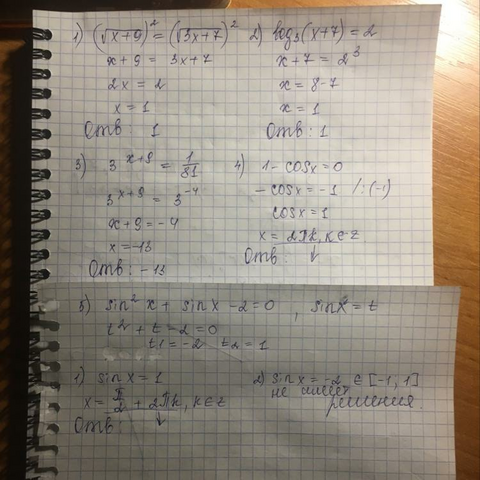 1) (√x+9)² = (√3x+7)²
x+9 = 3x+7
2x = 2
x = 1
Отв: 1
2) log₃(x+7) = 2
x+7 = 2³
x = 8-7
x = 1
Отв: 1
3) 3^(x+9) = 1/81
3^(x+9) = 3^(-4)
x+9 = -4
x = -13
Отв: -13
4) 1 - cosx = 0
- cosx = -1 /:(-1)
cosx = 1
x = 2πk, k∈z
Отв: ↓
5) sin² x + sinx - 2 = 0 , sinx = t
t² + t - 2 = 0
t1 = -2 t2 = 1
1) sinx = 1
x = π/2 + 2πk, k∈z
Отв: ↓
2) sinx = -2 ∈ [-1, 1]
не имеет
решения